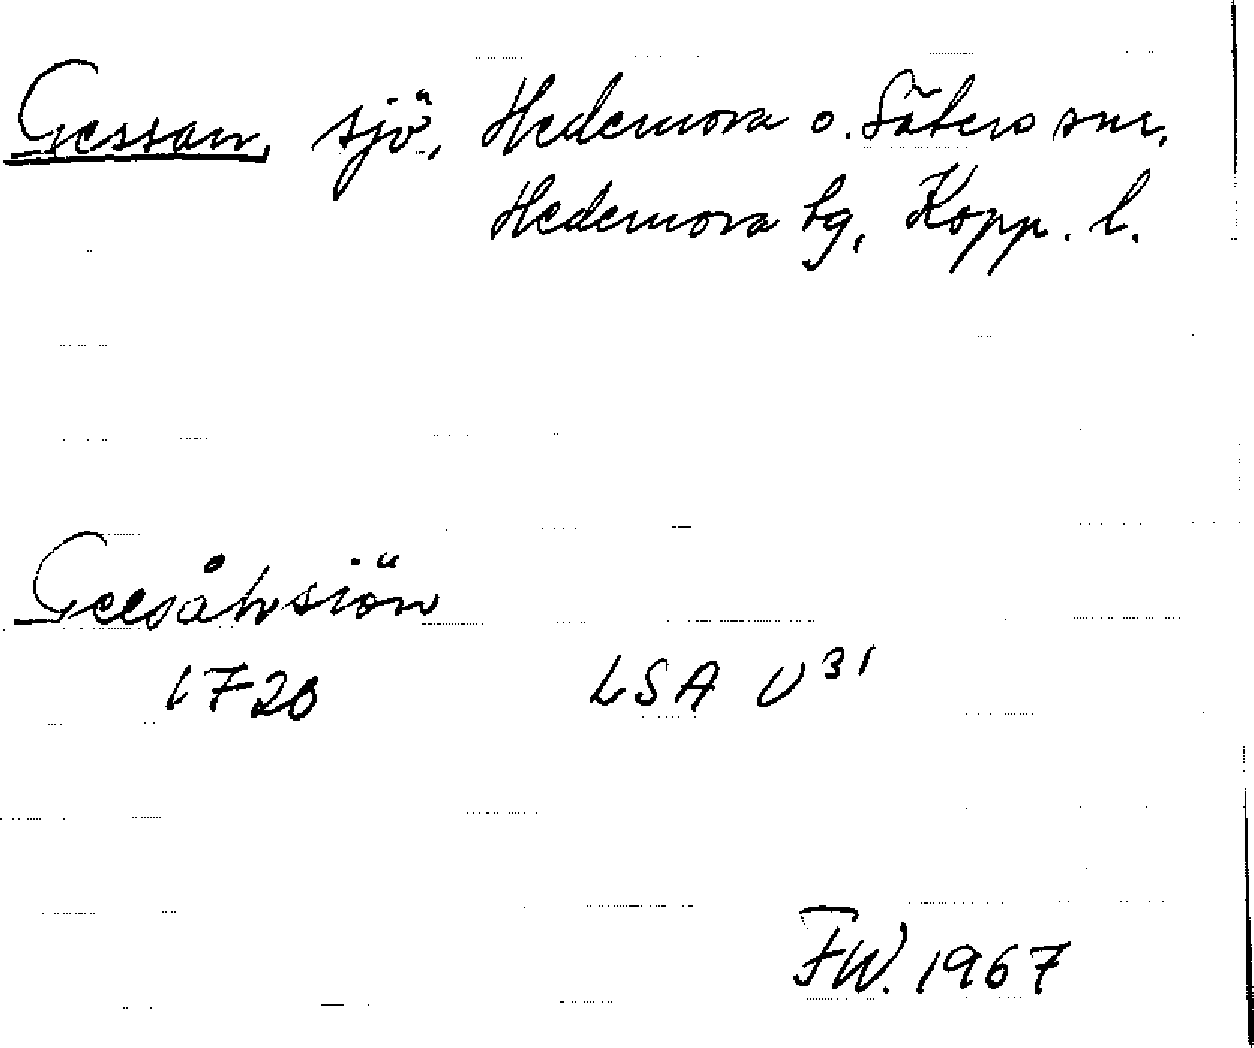 Gessan, sjö, Hedemora o. Säters snr,
Hedemora hg, Kopp. l.
Geesåhsiön
1720 LSA U 31
FW. 1967